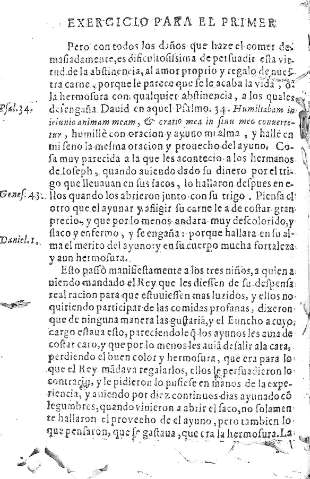 EXERCICIO PARA EL PRIMER
Pero con todos los daños que haze el comer de-
masiadamente, es dificultosissima de persuadir esta vir-
tud de la abstinencia, al amor proprio y regalo de nues-
tra carne, porque le parece que se le acaba la vida, ó
la hermosura con qualquier abstinencia, a los quales
Psal. 34. desengaña Dauid en aquel Psalmo. 34. Humiliabam in
ieiunio animam meam, & oratio mea in sinu meo conuerte-
tur, humillè con oracion y ayuno mi alma, y hallè en
mi seno la mesma oracion y prouecho del ayuno. Co-
sa muy parecida a la que les acontecio a los hermanos
de Ioseph, quando auiendo dado su dinero por el tri-
go que lleuauan en sus sacos, lo hallaron despues en e-
Genes. 43. llos quando los abrieron junto con su trigo. Piensa el
otro que el ayunar y afligir su carne le a de costar gran
precio, y que por lo menos andara muy descolorido, y
flaco y enfermo, y se engaña: porque hallara en su al-
Daniel. 1. ma el merito del ayuno y en su cuerpo mucha fortaleza
y aun hermosura.
Esto passò manifiestamente a los tres niños, a quien a-
uiendo mandado el Rey que les diessen de su despensa
real racion para que estuuiessen mas luzidos, y ellos no
quiriendo participar de las comidas profanas, dixeron
que de ninguna manera las gustariã, y el Eunucho a cuyo
cargo estaua esto, pareciendole q̃ los ayunos les auia de
costar caro, y que por lo menos les auiã de salir a la cara,
perdiendo el buen color y hermosura, que era para lo
que el Rey mãdava regalarlos, ellos le persuadieron lo
contrario, y le pidieron lo pusiese en manos de la expe-
riencia, y auiendo por diez continues dias ayunado cõ
legumbres, quando vinieron a abrir el saco, no solamen-
te hallaron el prouecho de el ayuno, pero tambien lo
que pensaron, que se gastaua, que era la hermosura. La